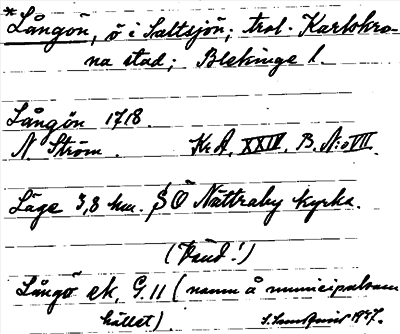 *Långön, ö i Saltsjön; trol. Karlskro-
na stad; Blekinge l.
Långön 1718.
N. Ström. Kr.A. XXIV. B. N:o VII.
Läge 3,8 km. SÖ Nättraby kyrka.
(Vänd!)
Långö ek. G. 11 (namn å municipalsam
hället)
1937.